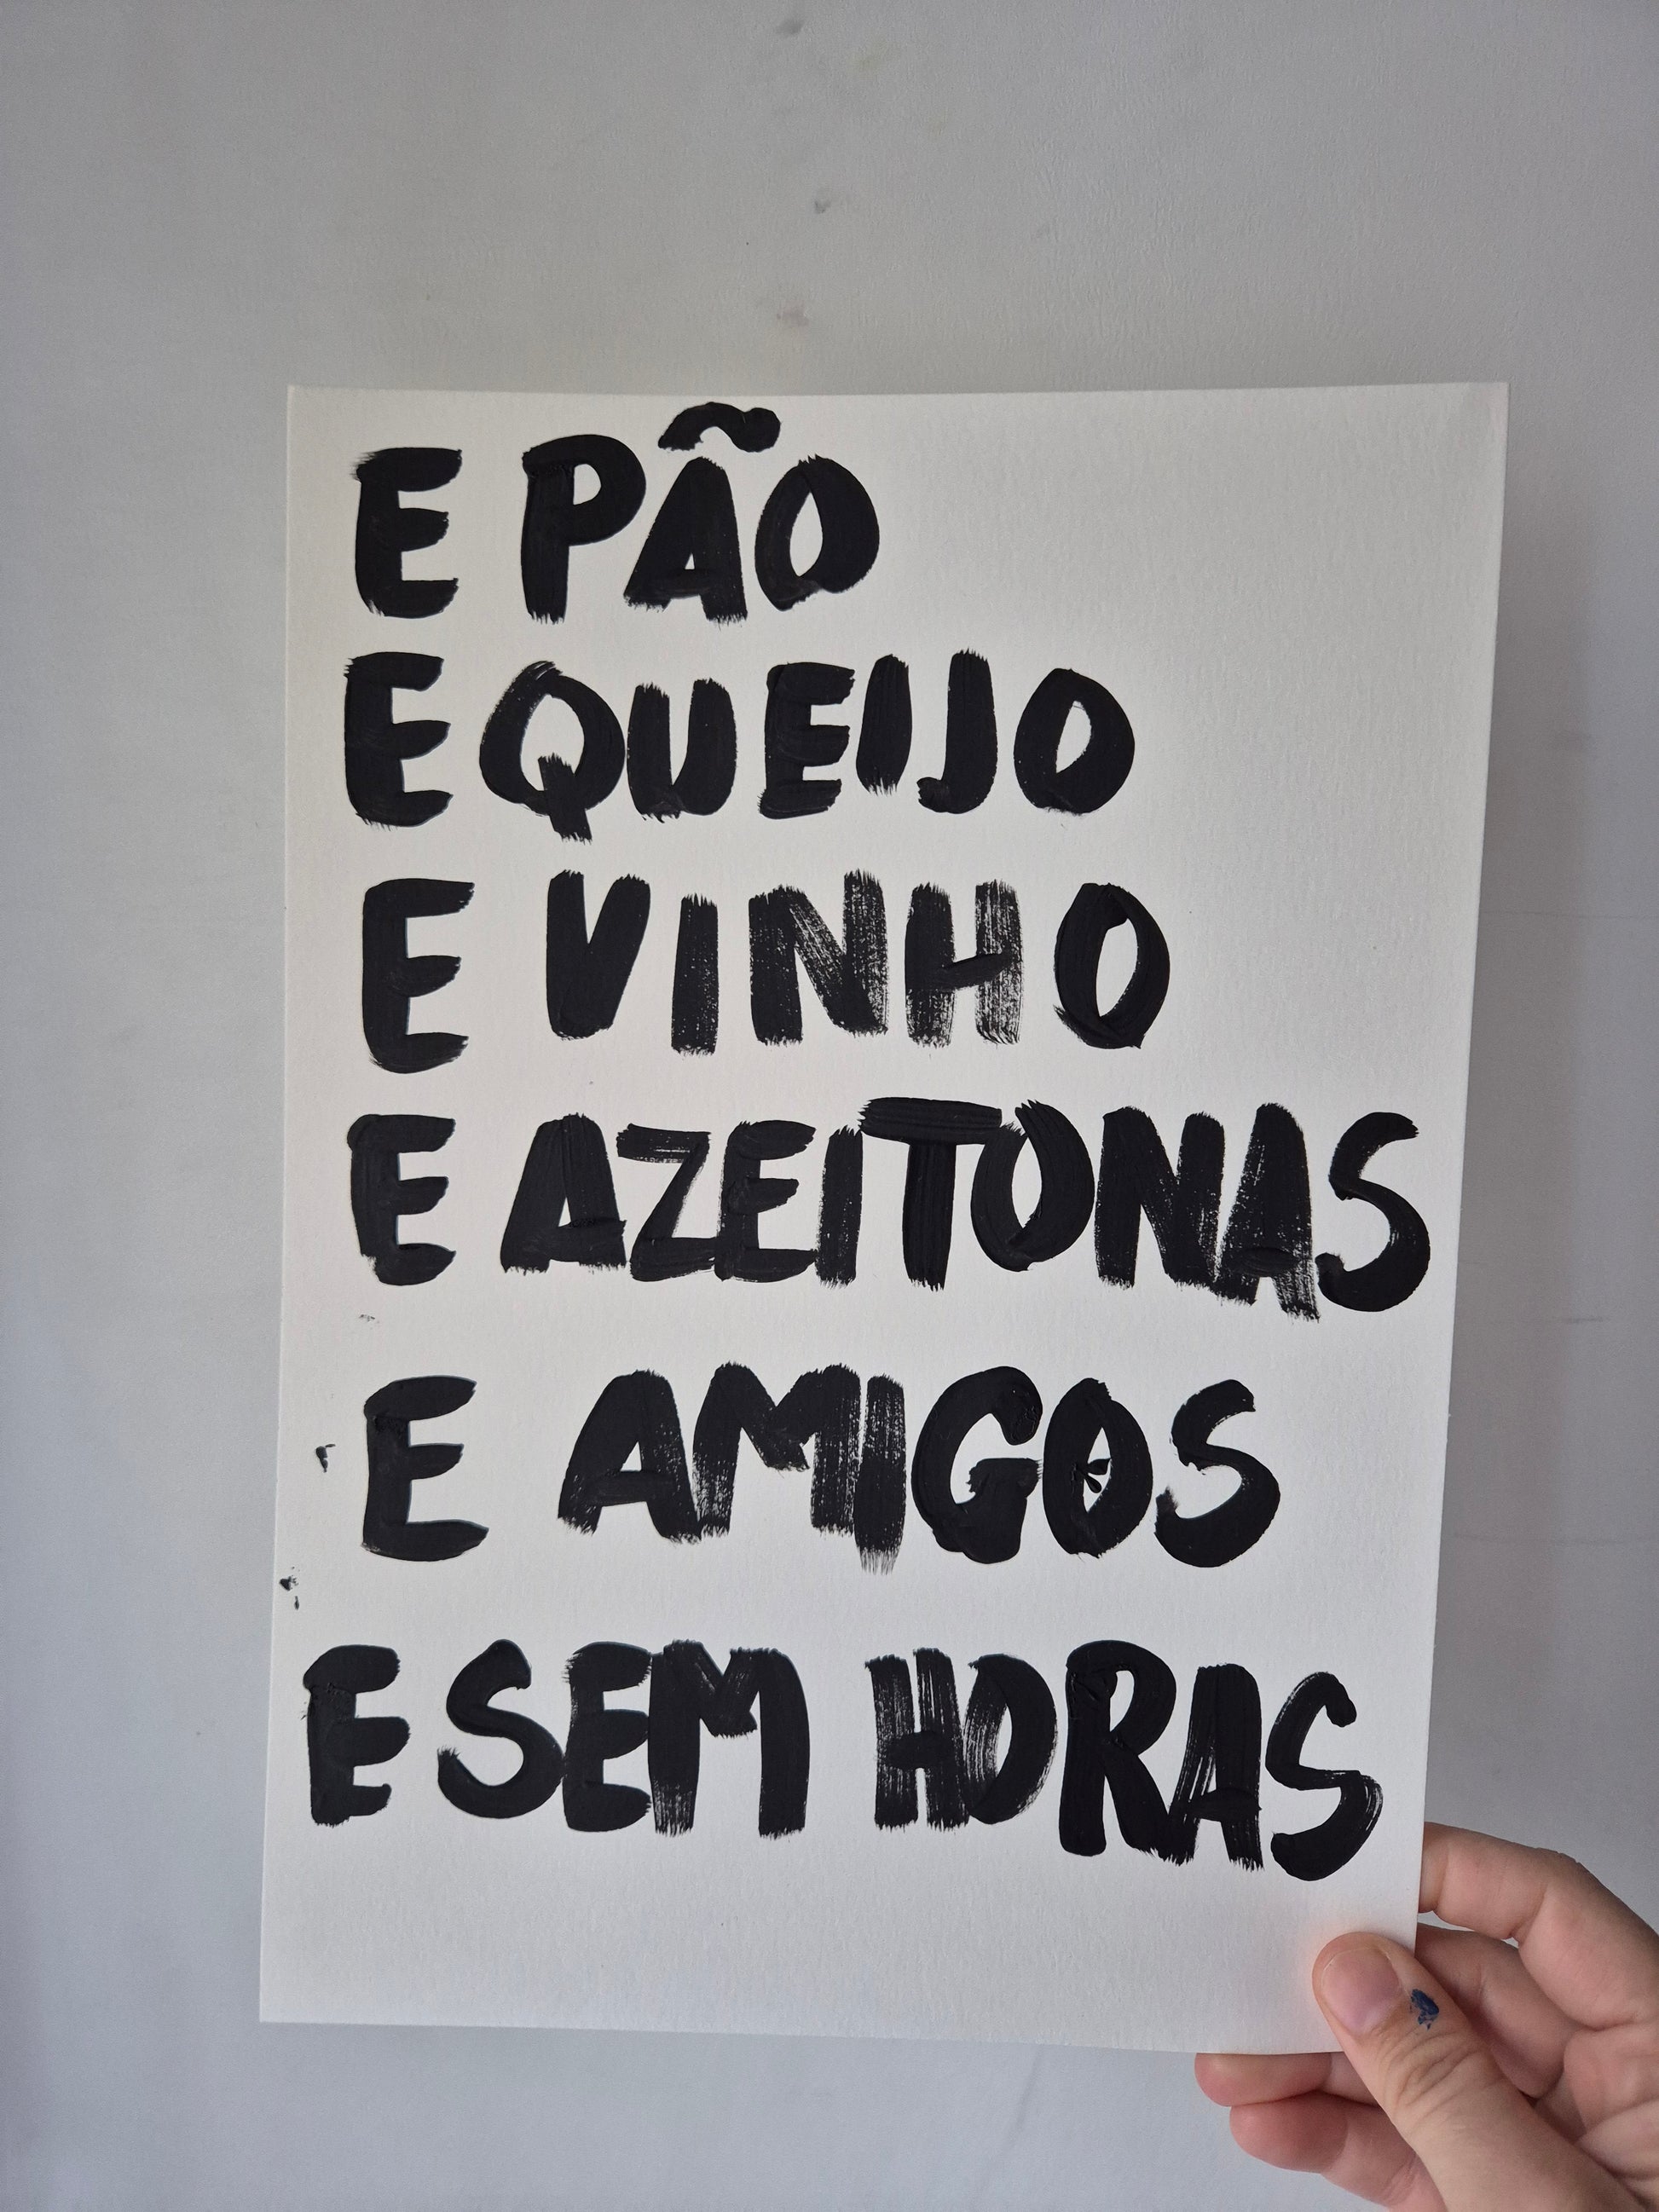 E PÃO
E QUEIJO
E VINHO
E AZEITONAS
E AMIGOS
E SEM HORAS